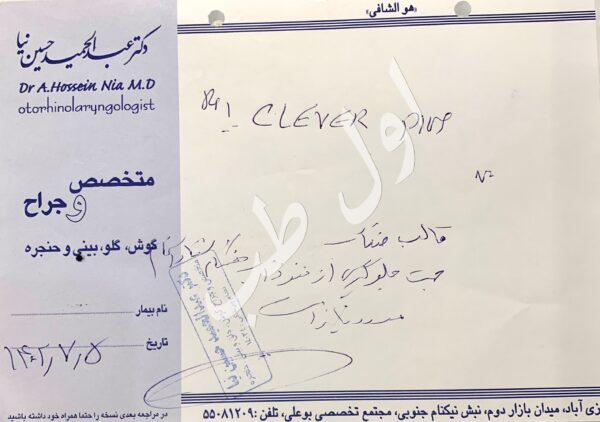 «هو الشافی»
دکتر عبدالحمید حسین نیا
Dr A.Hossein Nia M.D
otorhinolaryngologist
متخصص
و جراح
گوش، گلو، بینی و حنجره
نام بیمار
تاریخ
۱۴۰۲٫۷٫۵
در مراجعه بعدی نسخه را حتما همراه خود داشته باشید
CLEVER PLUS
قالب ضد
جهت جلوگیری از
مورد نیاز است
اول طب
زی آباد، میدان بازار دوم، نبش نیکنام جنوبی، مجتمع تخصصی بوعلی، تلفن: ۵۵۰۸۱۲۰۹